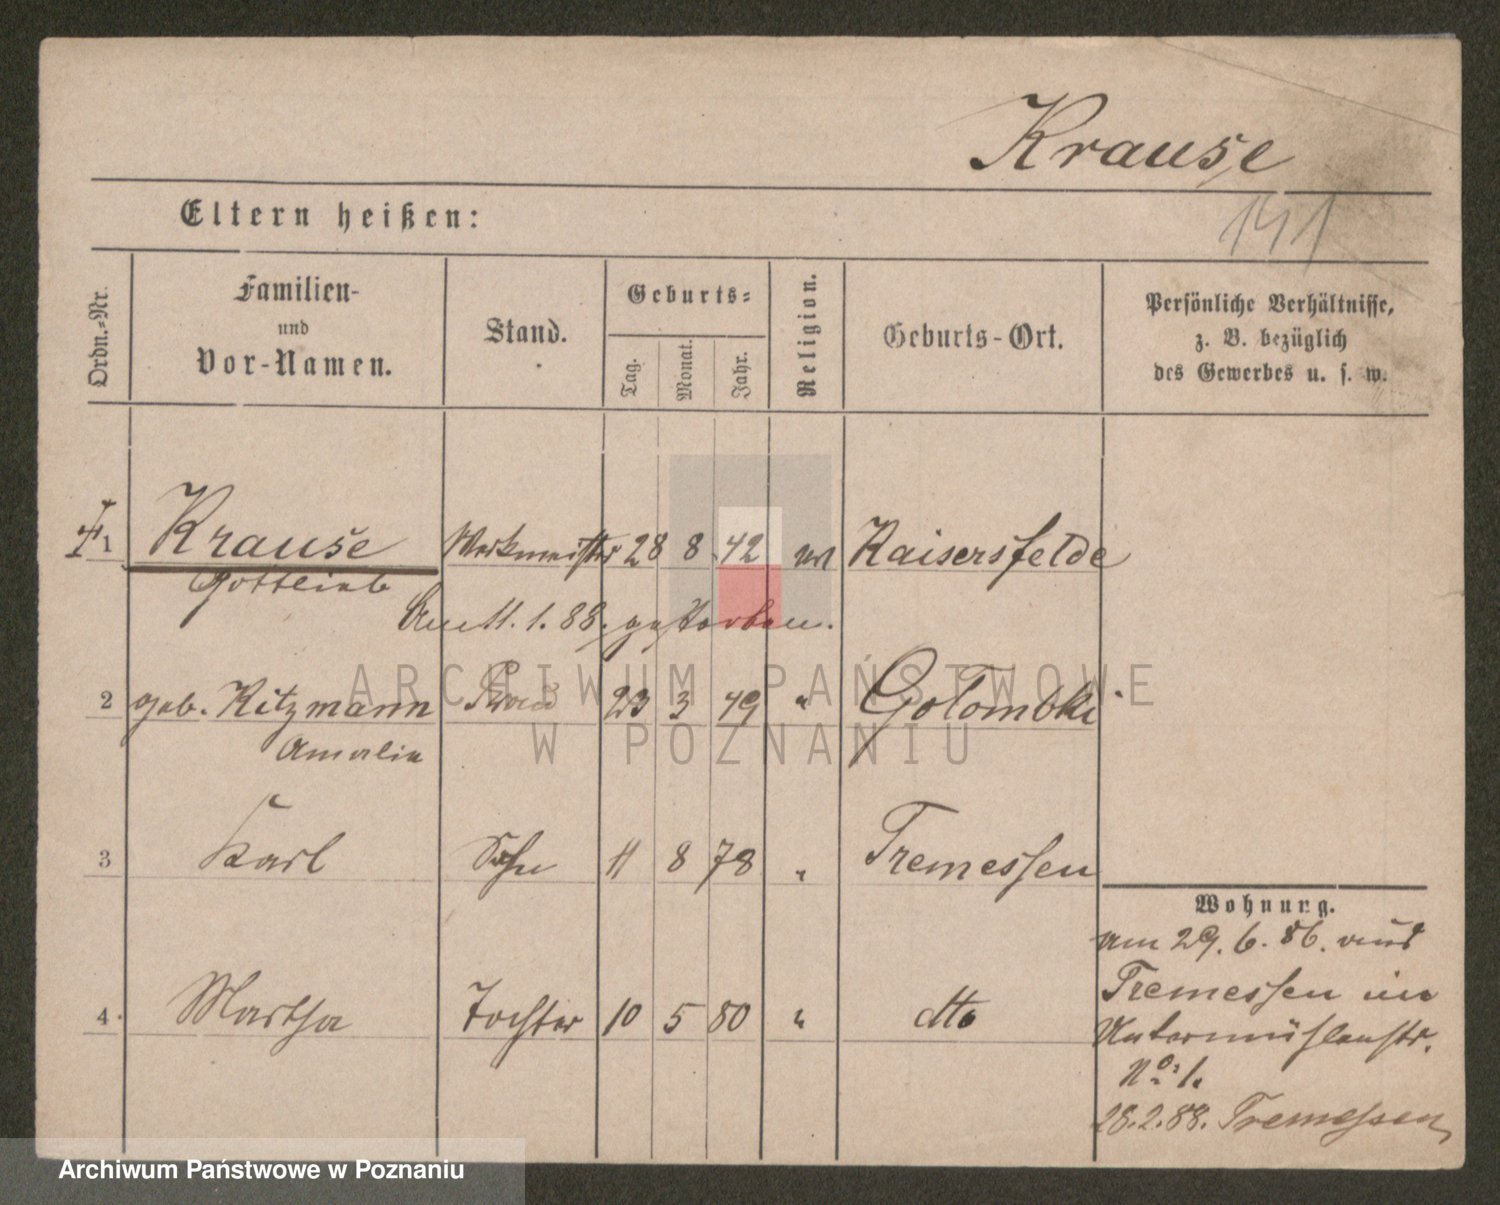 Krause
141
Eltern heißen:
Ordn.-Nr.
Familien-
und
Vor-Namen.
Stand.
Geburts-
Tag.
Monat.
Jahr.
Religion.
Geburts-Ort.
Persönliche Verhältnisse,
z. B. bezüglich
des Gewerbes u. s. w.
1 Krause Werkmeister 28 8 42 ev Kaisersfelde
Gottlieb
Am 11. 1. 88. gestorben.
2 geb. Kitzmann Frau 23 3 49 " Golombki
Amalie
3 Karl Sohn 11 8 78 " Tremessen
4. Martha Tochter 10 5 80 " dto
Wohnung.
am 29. 6. 86. aus
Tremessen in
Untermühlenstr.
No: 1.
28.2.88. Tremessen
ARCHIWUM PAŃSTWOWE
W POZNANIU
Archiwum Państwowe w Poznaniu